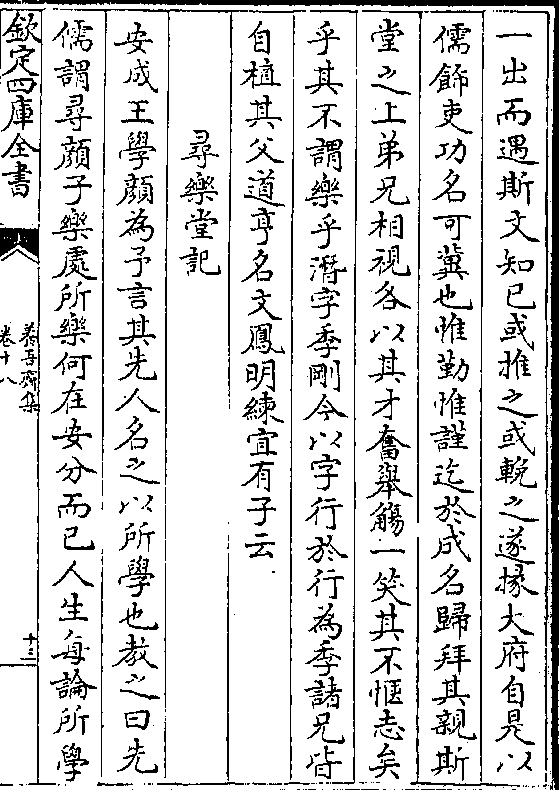 一出而遇斯文知已或推之或輓之遂掾大府自是以
儒飾吏功名可冀也惟勤惟謹迄於成名歸拜其親斯
堂之上弟兄相視各以其才奮舉觴一笑其不愜志矣
乎其不謂樂乎濳字季剛今以字行於行為季諸兄皆
自植其父道亨名文鳳明練宜有子云
尋樂堂記
安成王學顔為予言其先人名之以所學也教之曰先
儒謂尋顔子樂處所樂何在安分而已人生每論所學
欽定四庫全書
養吾齋集
卷十八
十三